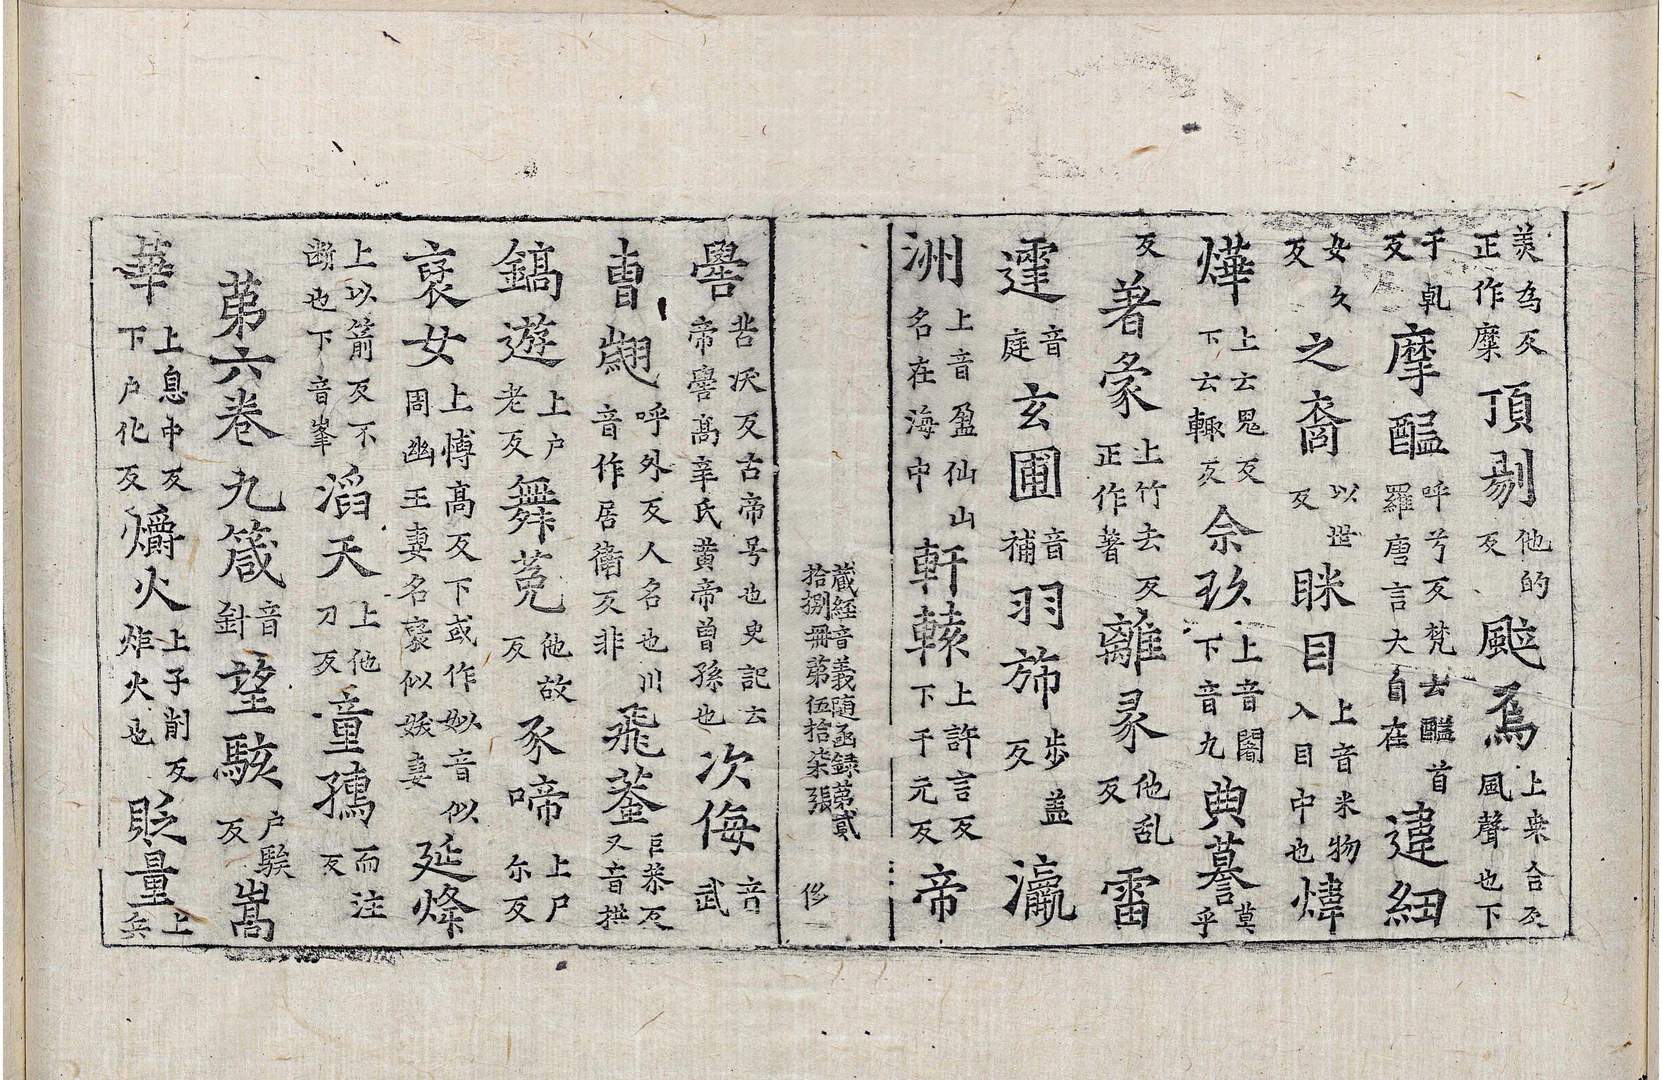 美為反正作糜頂剔他的反颭爲上叅合反風聲也下
于乹反摩醯呼兮反梵去醯首羅唐言大自在違紐
女久反之裔以世反眯目上音米物入目中也煒
燁上云鬼反下云輒反佘玖上音闍下音九典謩莫乎
反著彖上竹去反正作著離彖他乱反雷
霆音庭玄圃音補羽斾步盖反瀛
洲上音盈仙山名在海中軒轅上許言反下于元反帝
藏經音義随函録苐貳拾捌冊苐伍拾柒張 侈
嚳苦沃反古帝号也史記云帝嚳髙辛氏黄帝曽孫也次侮音武
曺翽呼外反人名也川音作居衛反非飛蓥巨恭反又音拱
鎬遊上户老反舞菟他故反豕啼上尸尔反
裦女上愽高反下或作姒音似周幽王妻名裦似妖妻延烽
上以箭反不断也下音峯滔天上他刀反童孺而注反
苐六卷九箴音針望駭户駭反嵩
華上息中反下户化反爝火上子削反炸火也貶量上兵